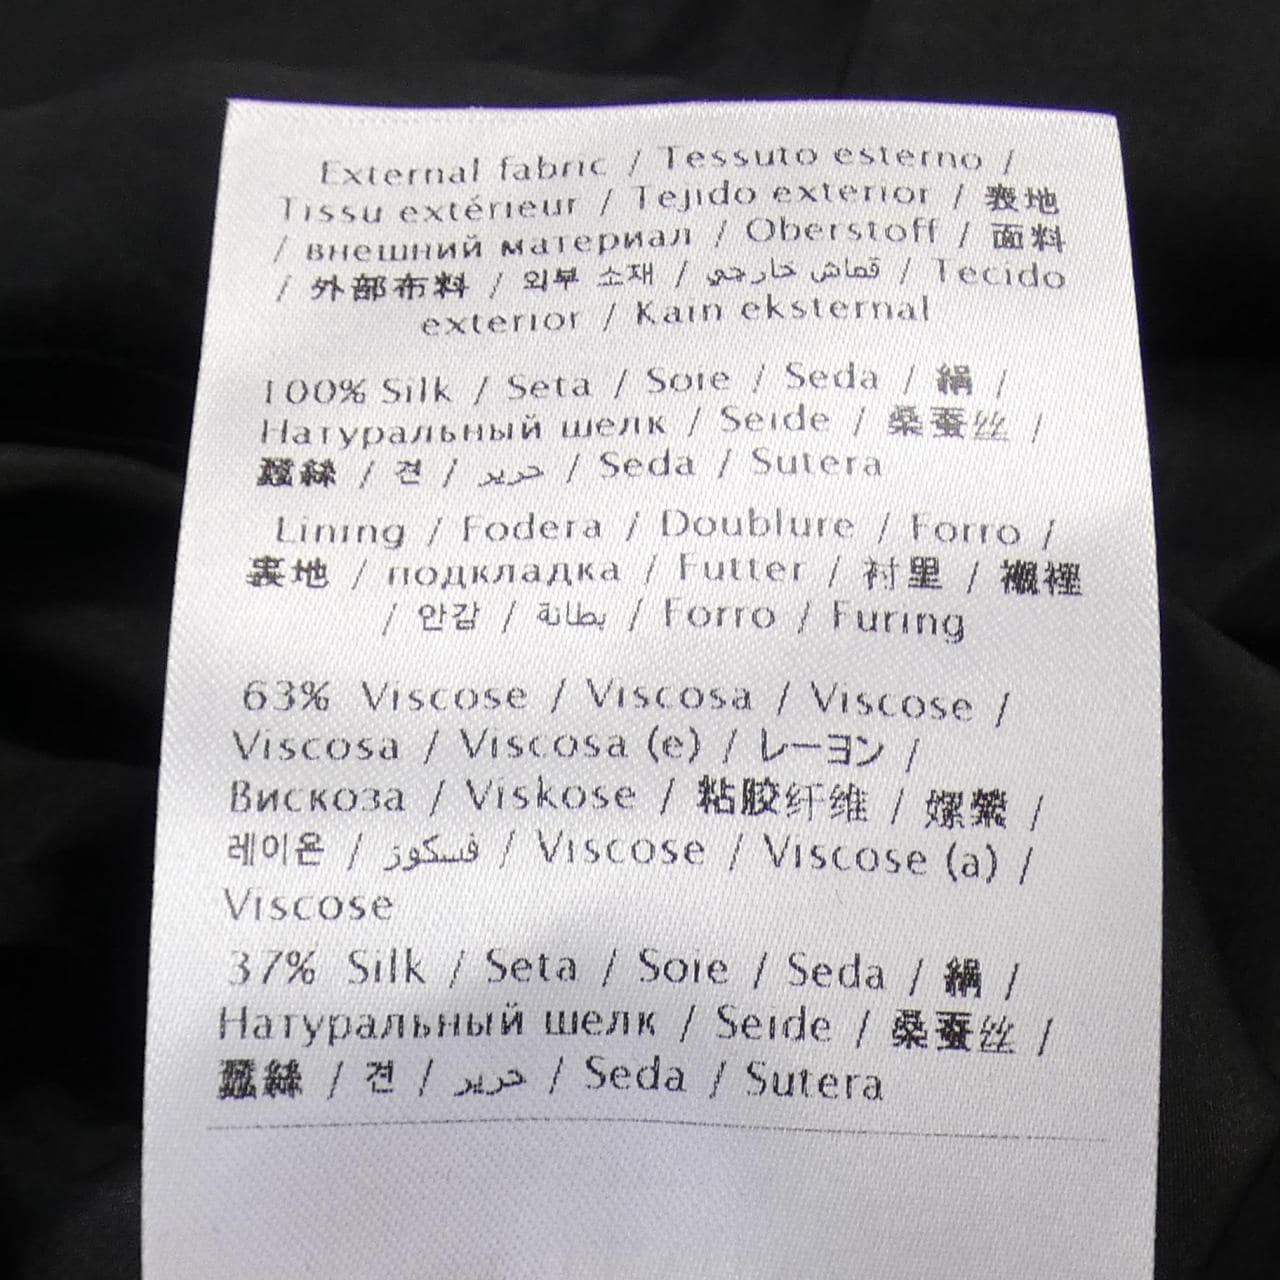 External fabric / Tessuto esterno /
Tissu extérieur / Tejido exterior / 表地
/ внешний материал / Oberstoff / 面料
/ 外部布料 / 외부 소재 / قماش خارجي / Tecido
exterior / Kain eksternal
100% Silk / Seta / Soie / Seda / 絹 /
Натуральный шелк / Seide / 桑蚕丝 /
蠶絲 / 견 / حرير / Seda / Sutera
Lining / Fodera / Doublure / Forro /
裏地 / подкладка / Futter / 衬里 / 襯裡
/ 안감 / بطانة / Forro / Furing
63% Viscose / Viscosa / Viscose /
Viscosa / Viscosa (e) / レーヨン /
Вискоза / Viskose / 粘胶纤维 / 嫘縈 /
레이온 / فسكوز / Viscose / Viscose (a) /
Viscose
37% Silk / Seta / Soie / Seda / 絹 /
Натуральный шелк / Seide / 桑蚕丝 /
蠶絲 / 견 / حرير / Seda / Sutera